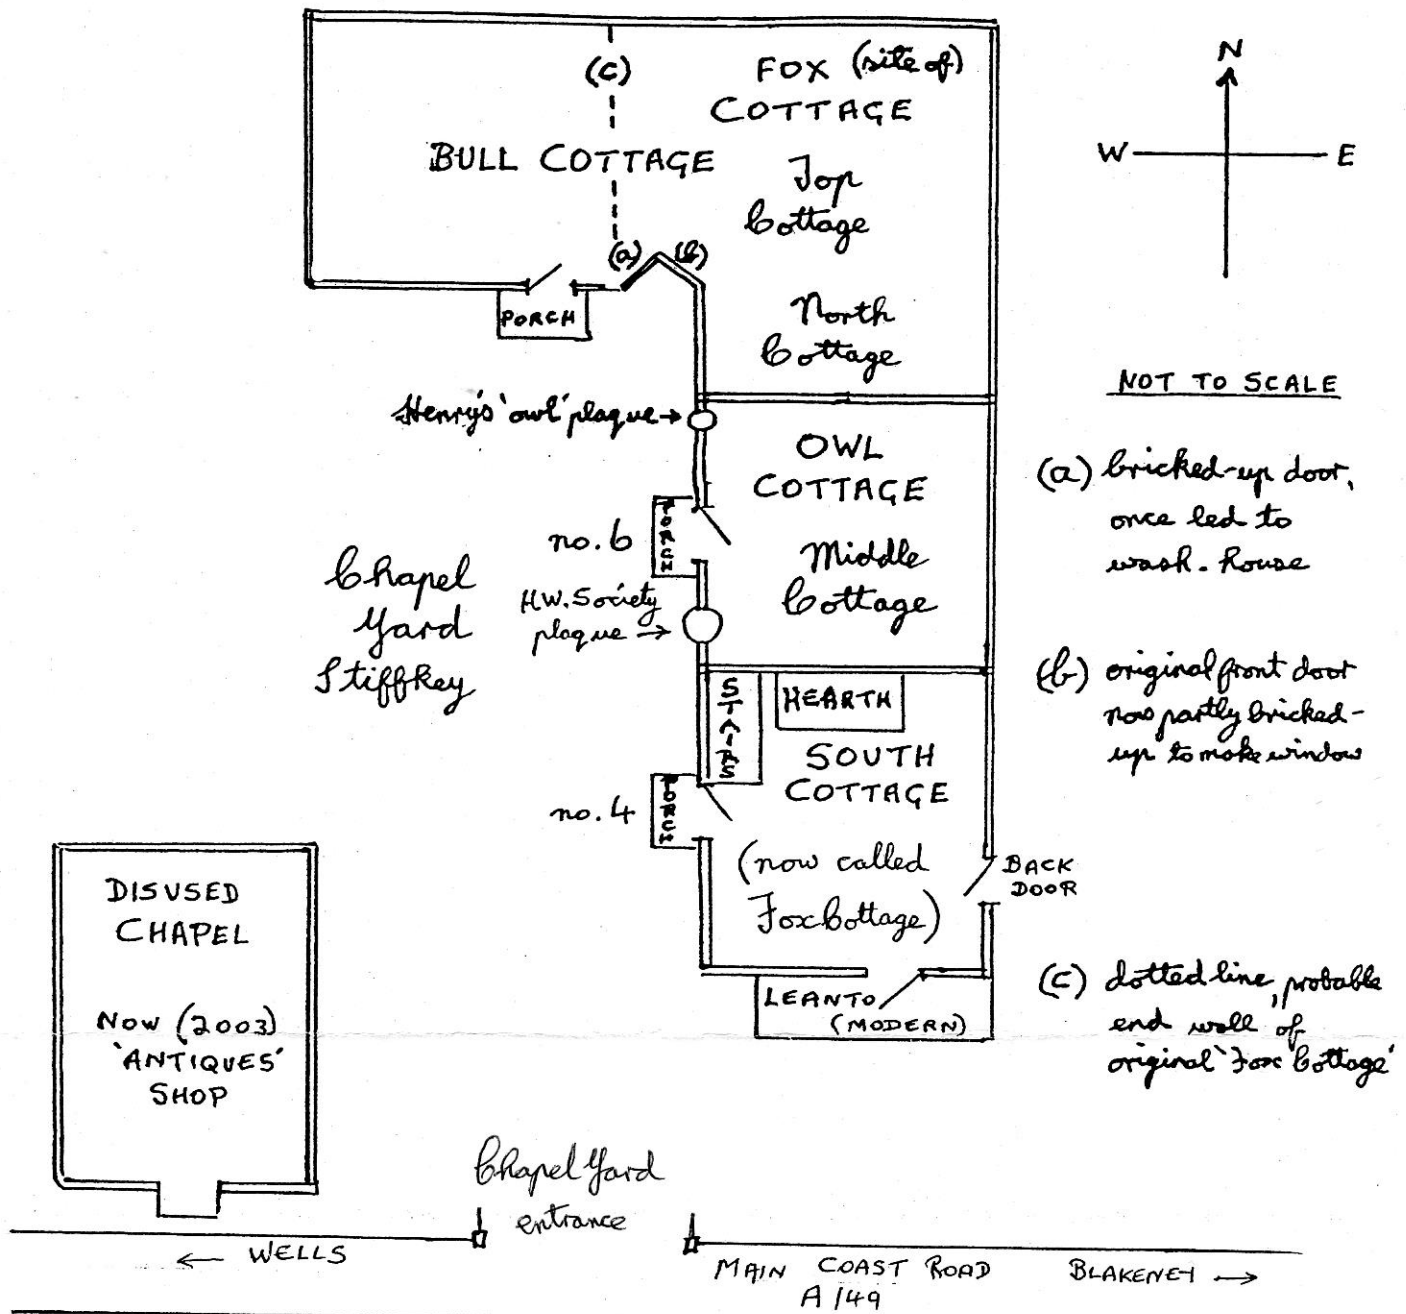 (c)
FOX (site of)
COTTAGE
BULL COTTAGE
Top
Cottage
(a)
(b)
PORCH
North
Cottage
N
W
E
NOT TO SCALE
Henry's 'owl' plaque →
OWL
COTTAGE
no. 6
PORCH
Middle
Cottage
H.W. Society
plaque →
Chapel
Yard
Stiffkey
STAIRS
HEARTH
SOUTH
COTTAGE
no. 4
PORCH
(now called
Fox Cottage)
BACK
DOOR
LEANTO
(MODERN)
(a) bricked-up door,
once led to
wash-house
(b) original front door
now partly bricked-
up to make window
(c) dotted line, probable
end wall of
original 'Fox Cottage'
DISUSED
CHAPEL
NOW (2003)
'ANTIQUES'
SHOP
Chapel Yard
entrance
← WELLS
MAIN COAST ROAD
A149
BLAKENEY →